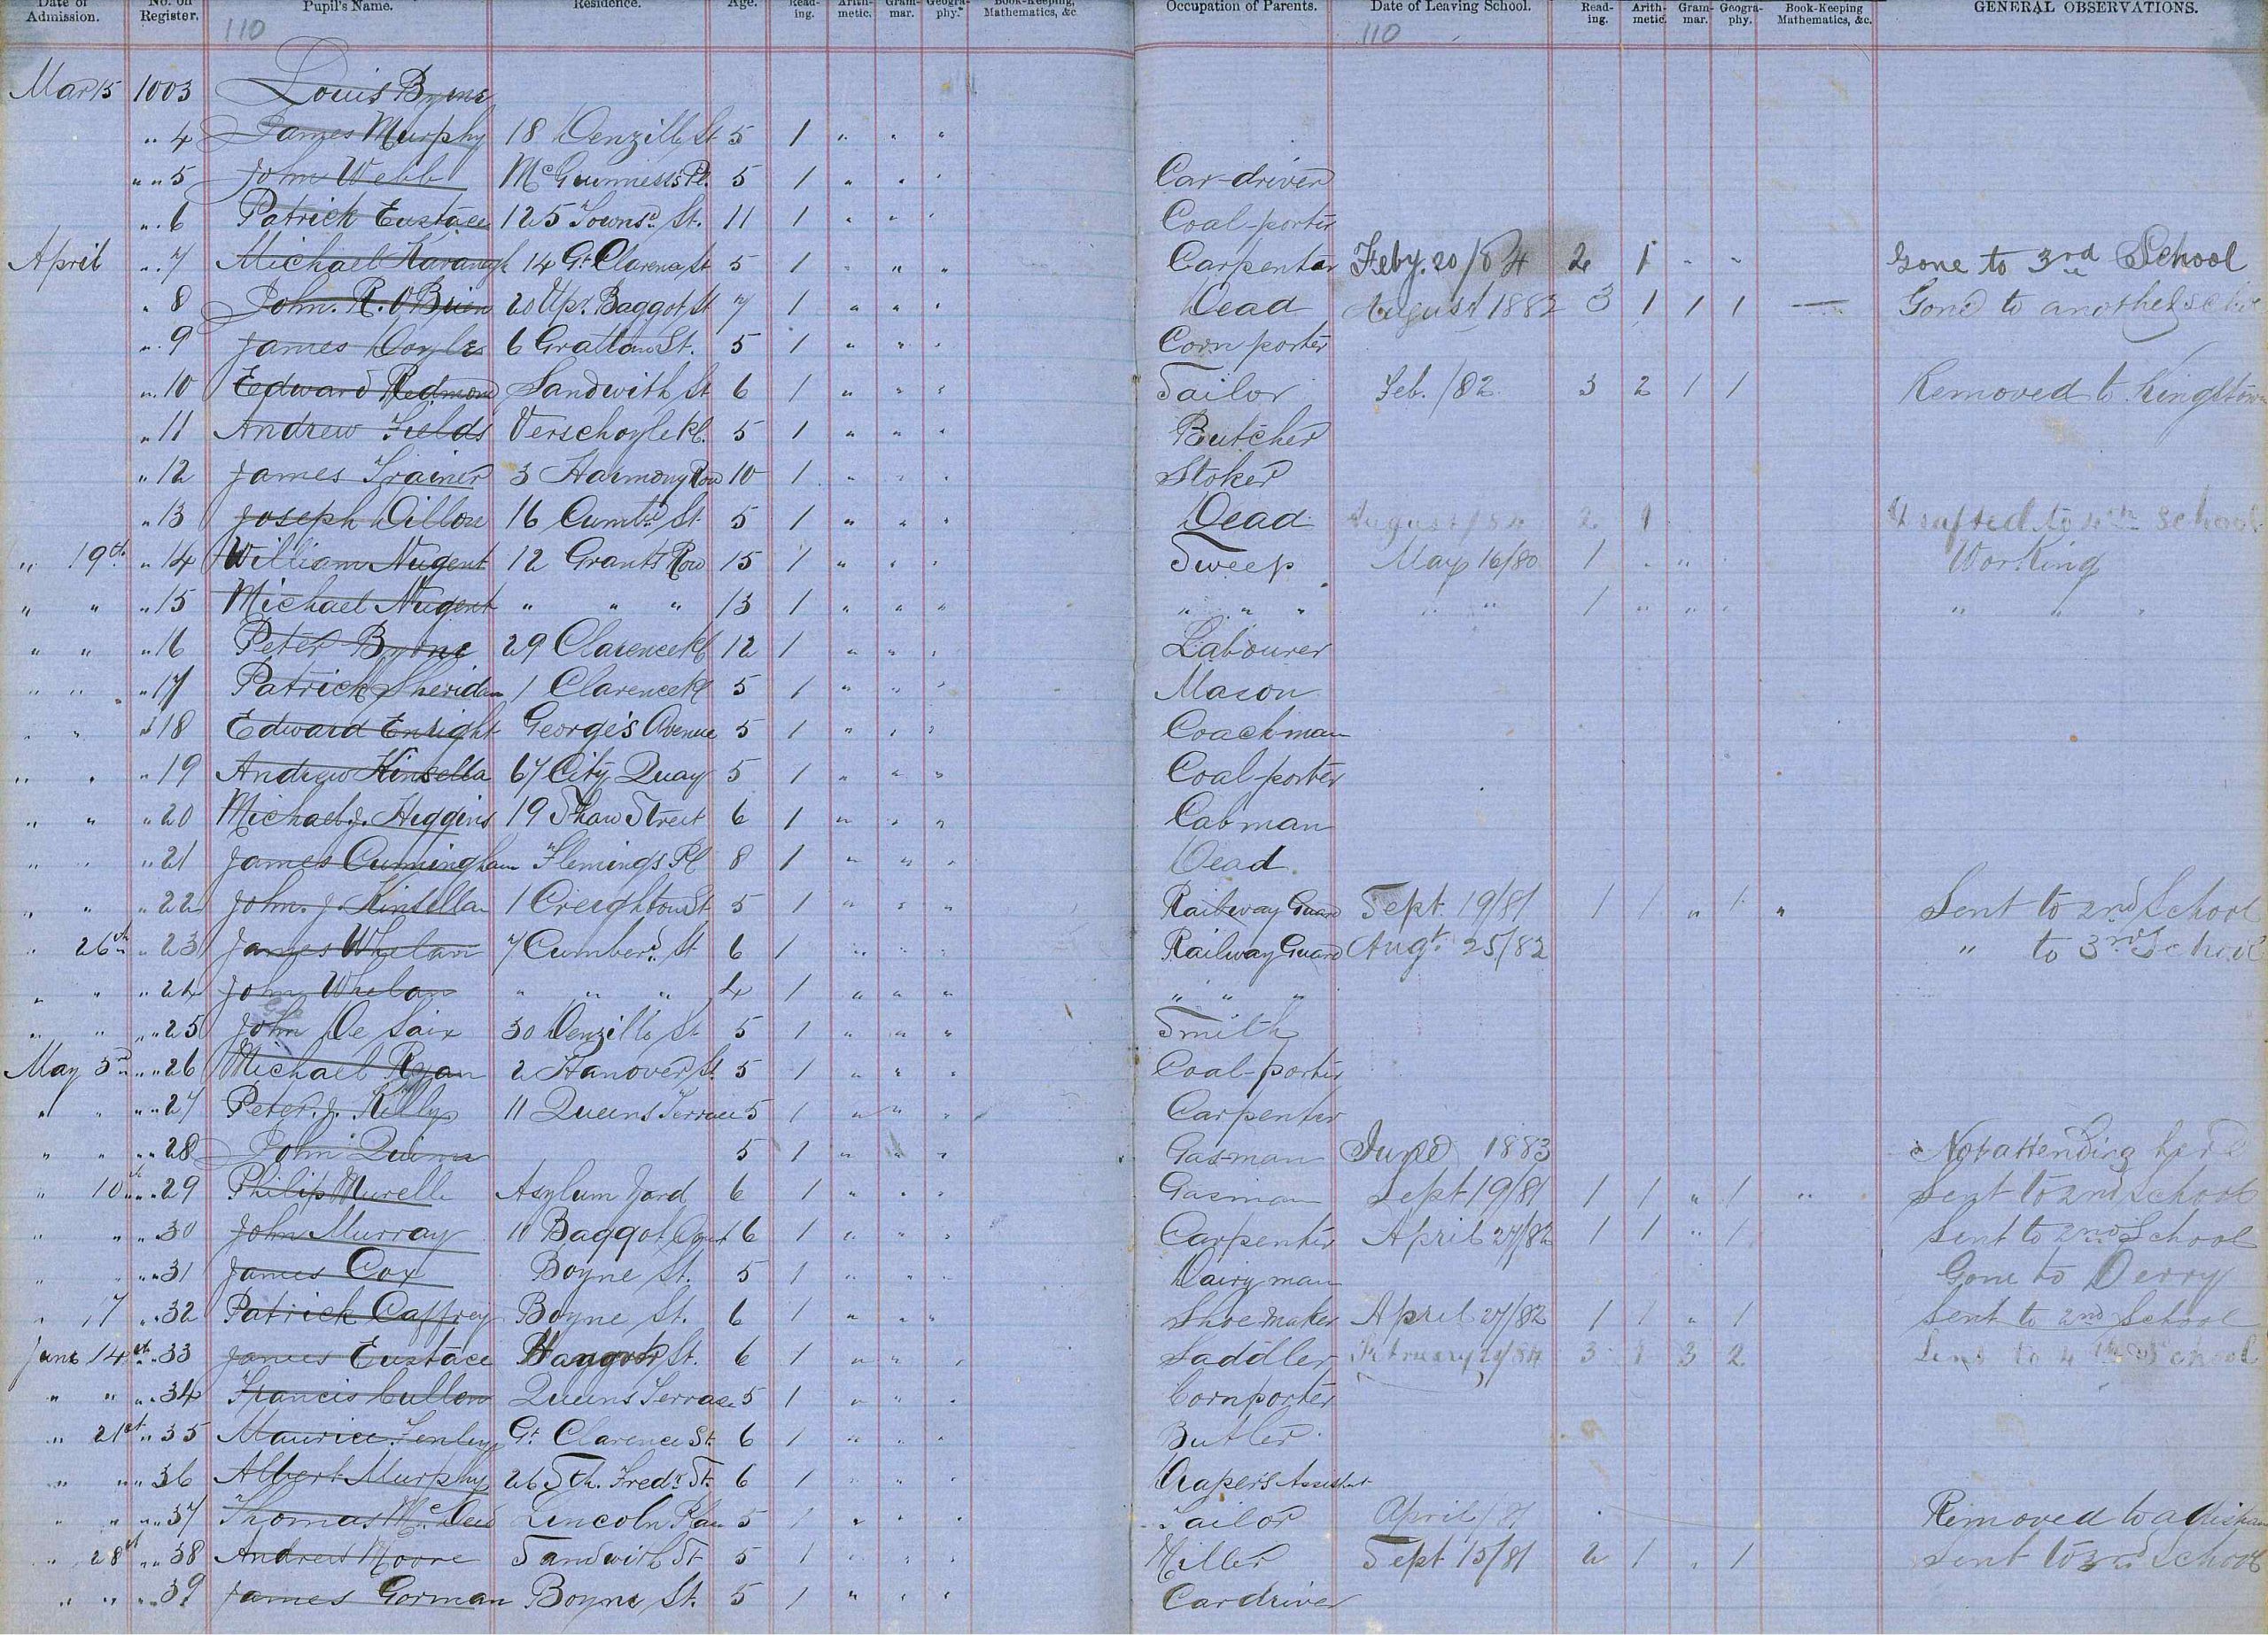 Date of Admission. No. on Register. Pupil's Name. Residence. Age. Read-ing. Arith-metic. Gram-mar. Geogra-phy. Book-Keeping, Mathematics, &c. Occupation of Parents. Date of Leaving School. Read-ing. Arith-metic. Gram-mar. Geogra-phy. Book-Keeping Mathematics, &c. GENERAL OBSERVATIONS.
110 110
Mar 15 1003 Louis Byrne
" 4 James Murphy 18 Denzille St 5 1 " " "
" " 5 John Webb McGuinness Pl. 5 1 " " " Car-driver
" 6 Patrick Eustace 125 Townsd St. 11 1 " " " Coal-porter
April " 7 Michael Kavanagh 14 Gt Clarence St 5 1 " " " Carpenter Feby. 20/84 2 1 " " Gone to 3rd School
" 8 John. R. O'Brien 20 Upr. Baggot St 7 1 " " " Dead August 1882 3 1 1 1 — Gone to another
" 9 James Doyle 6 Grattan St. 5 1 " " " Corn porter
" 10 Edward Redmond Sandwith St 6 1 " " " Tailor Feb./82 3 2 1 1 Removed to Kingstown
" 11 Andrew Fields Verschoyle Pl. 5 1 " " " Butcher
" 12 James Trainer 3 Harmony Row 10 1 " " " Stoker
" 13 Joseph Dillon 16 Cumbd St. 5 1 " " " Dead August/84 2 1 to 4th School
" 19th " 14 William Nugent 12 Grants Row 15 1 " " " Sweep May 16/80 1 " " Working
" " " 15 Michael Nugent " " " 13 1 " " " " " " " " 1 " " " " " "
" " " 16 Peter Byrne 29 Clarence Pl 12 1 " " " Labourer
" " " 17 Patrick Sheridan 1 Clarence Pl 5 1 " " " Mason
" " " 18 Edward Enright George's Avenue 5 1 " " " Coachman
" " " 19 Andrew Kinsella 67 City Quay 5 1 " " " Coal-porter
" " " 20 Michael J. Higgins 19 Shaw Street 6 1 " " " Cabman
" " " 21 James Cunningham Flemings Pl 8 1 " " " Dead
" " " 22 John. J. Kinsella 1 Creighton St 5 1 " " " Railway Guard Sept. 19/81 1 1 " 1 " Sent to 2nd School
" 26th " 23 James Whelan 7 Cumberd St 6 1 " " " Railway Guard Augt. 25/82 " to 3rd School
" " " 24 John Whelan " " " 4 1 " " " " " "
" " " 25 John De Laix 30 Denzille St 5 1 " " " Smith
May 3rd " " 26 Michael Ryan 2 Hanover St. 5 1 " " " Coal-porter
" " " " 27 Peter. J. Kelly 11 Queens Terrace 5 1 " " " Carpenter
" " " " 28 John Quinn 5 1 " " " Gas-man June 1883 Not attending here
" 10th " " 29 Philip Murelle Asylum Yard 6 1 " " " Gasman Sept 19/81 1 1 " 1 " Sent to 2nd School
" " " 30 John Murray 10 Baggot Court 6 1 " " " Carpenter April 27/82 1 1 " 1 Sent to 2nd School
" " " 31 James Cox Boyne St. 5 1 " " " Dairyman Gone to Derry
" 17 " 32 Patrick Caffrey Boyne St. 6 1 " " " Shoemaker April 27/82 1 1 " 1 Sent to 2nd School
June 14th " 33 James Eustace St. 6 1 " " " Saddler February 29/84 3 1 3 2 Sent to 4th School
" " " 34 Francis Cullen Queens Terrace 5 1 " " " Cornporter
" 21st " 35 Maurice Fenley Gt Clarence St. 6 1 " " " Butler
" " " 36 Albert Murphy 26 Sth. Fredk St. 6 1 " " " Drapers Assistant
" " " 37 Thomas Lincoln Place 5 1 " " " Tailor April/81 Removed to a distance
" 28th " 38 Andrew Moore Sandwith St 5 1 " " " Miller Sept 15/81 2 1 " 1 Sent to School
" " " 39 James Gorman Boyne St. 5 1 " " " Cardriver